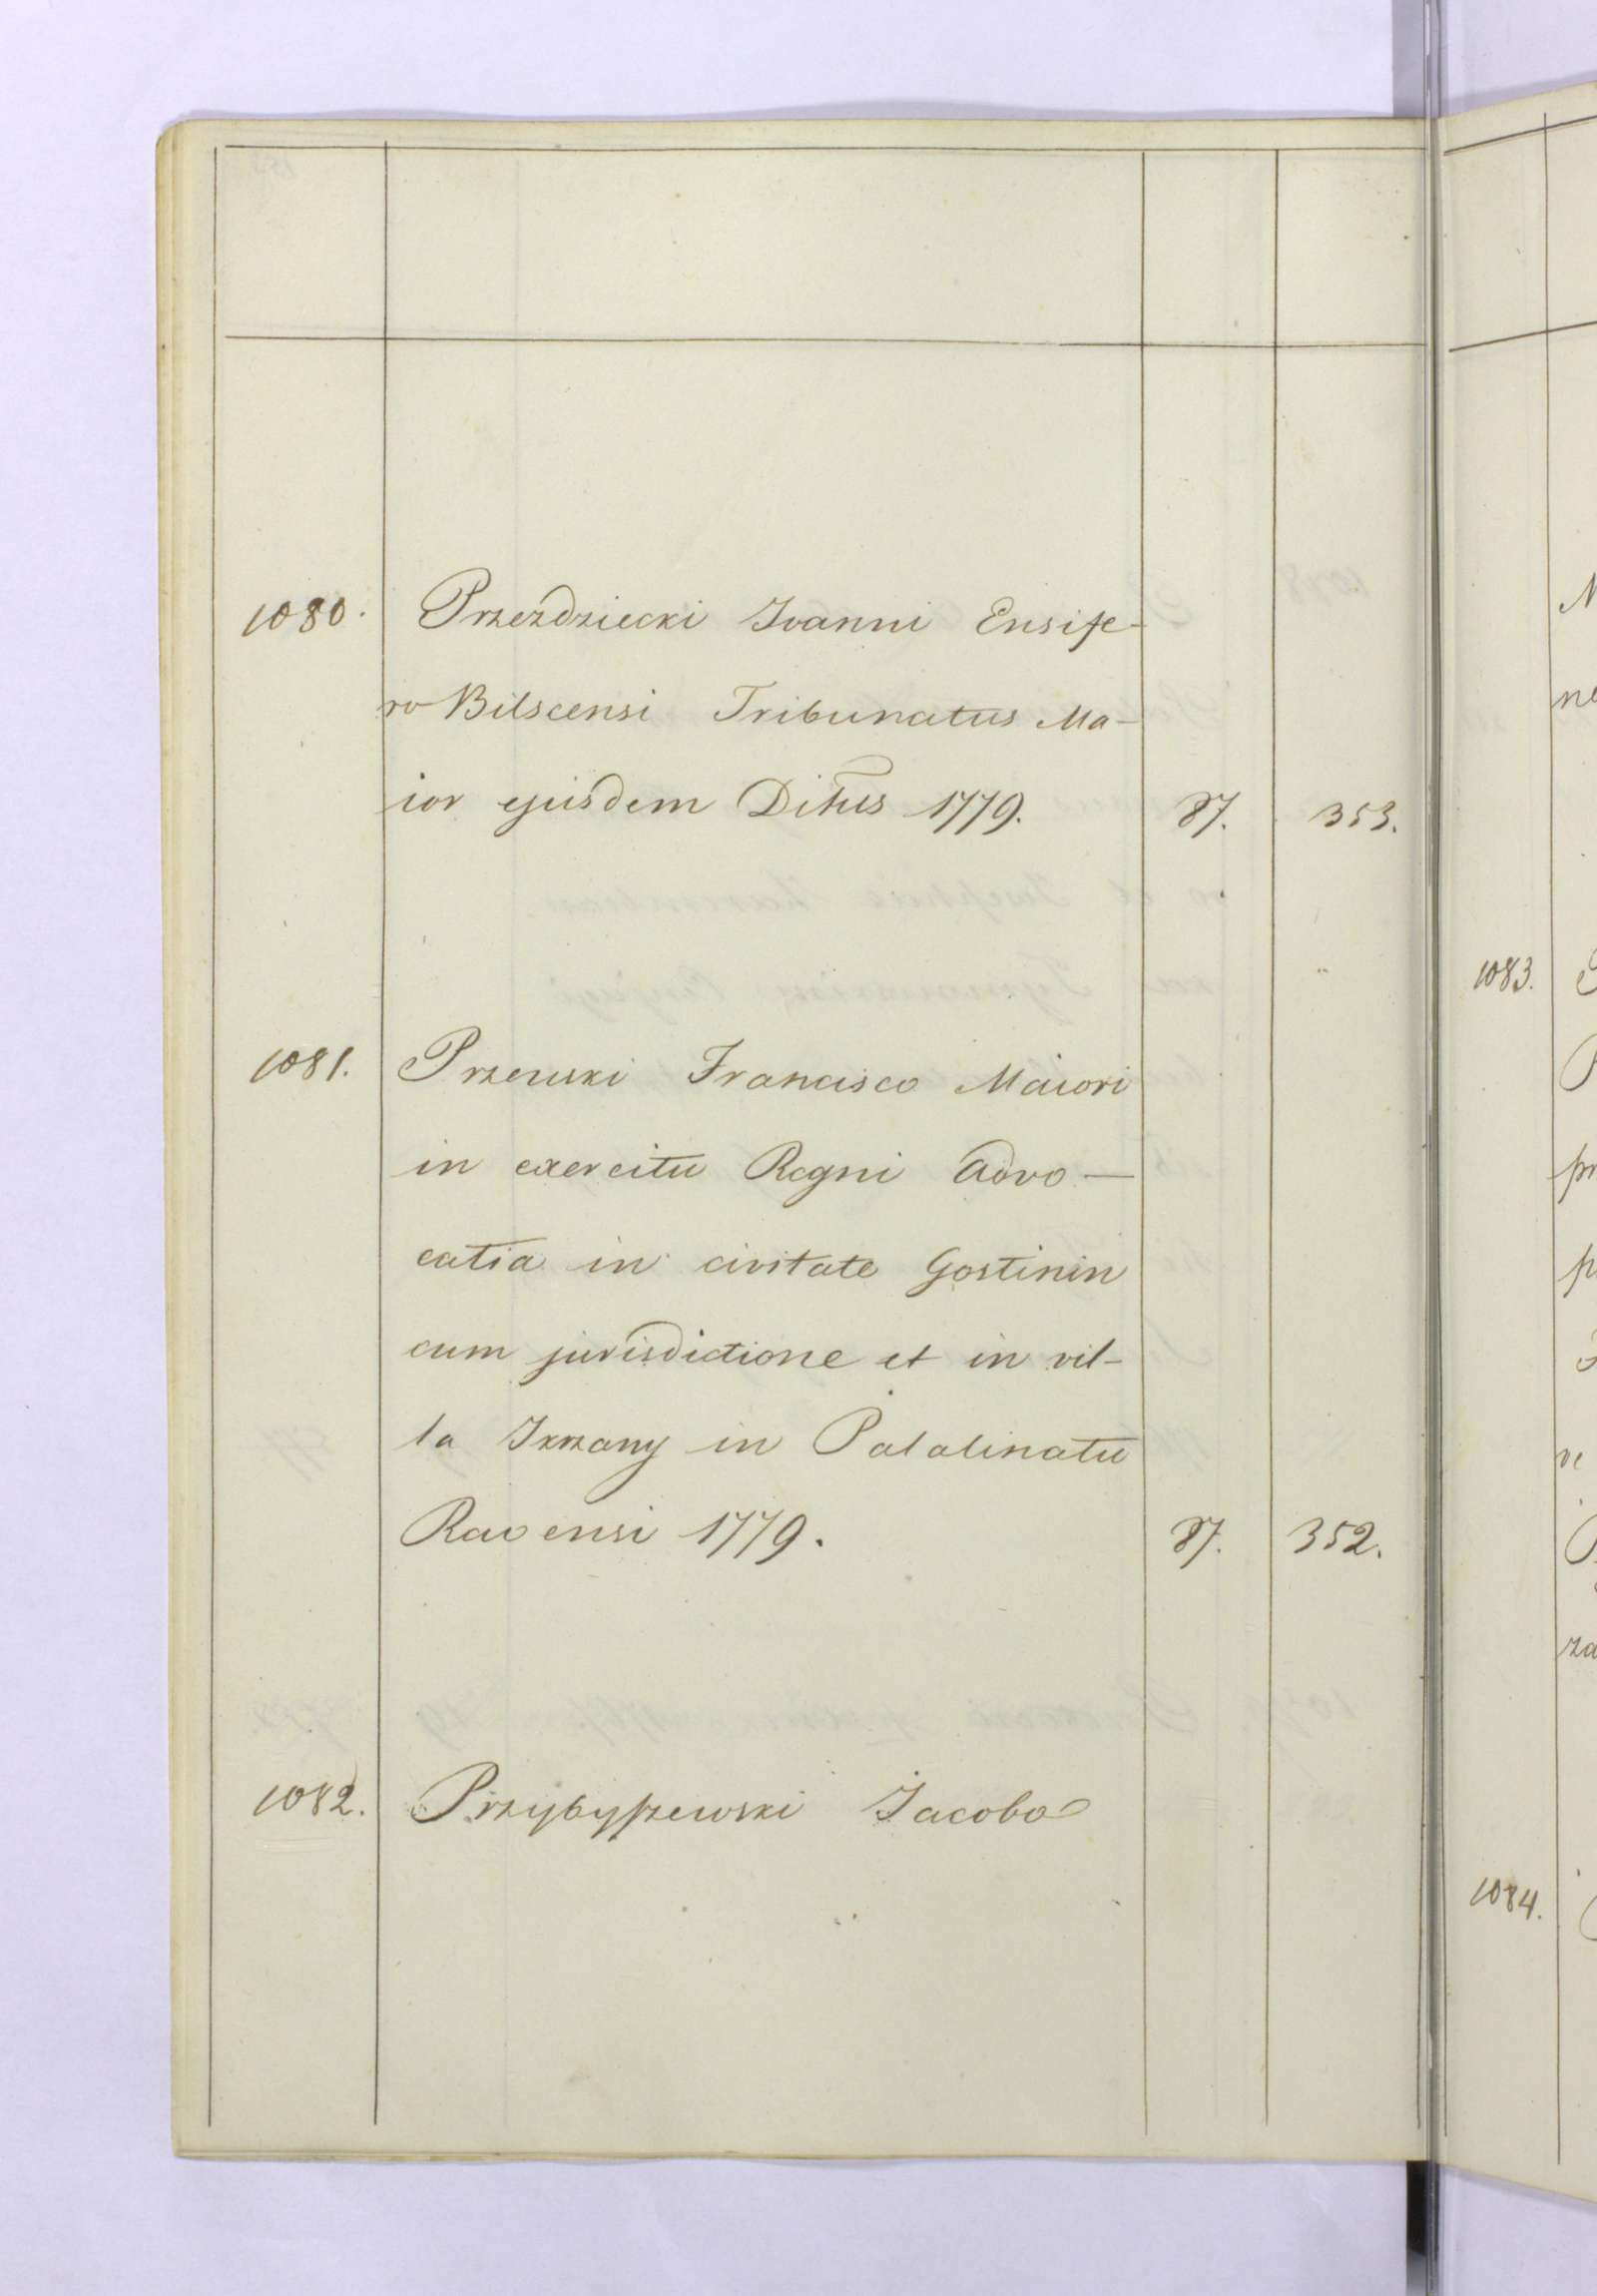 1080. Przezdziecki Ioanni Ensife-
ro Bilscensi Tribunatus Ma-
ior ejusdem Dittus 1779. 87. 353.
1081. Przewski Francisco Maiori
in exercitu Regni advo-
catia in civitate Gostinin
cum jurisdictione et in vil-
la in Palatinatu
Ravensi 1779. 87. 352.
1082. Przybyszewski Jacobo
1083.
1084.